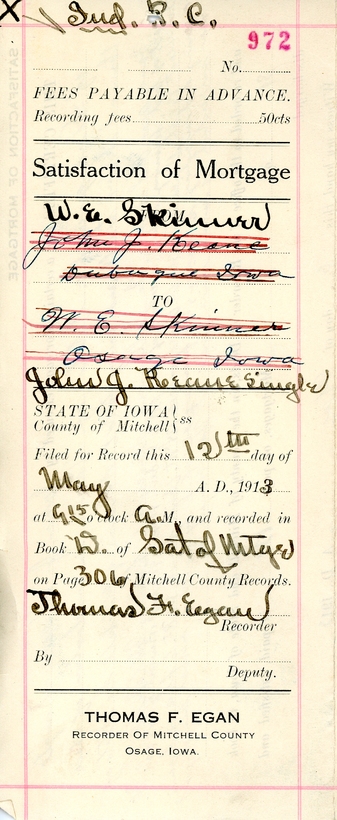 X Ind. R. C.
972
No.
FEES PAYABLE IN ADVANCE.
Recording fees 50cts
Satisfaction of Mortgage
W. E. Skinner
John J. Keane
Dubuque Iowa
TO
W. E. Skinner
Osage Iowa
John J. Keane Single
STATE OF IOWA
County of Mitchell } ss
Filed for Record this 12th day of
May A. D., 1913
at 9 15 o'clock A. M, and recorded in
Book D. of Sat of Mtge
on Page 306 of Mitchell County Records.
Thomas F. Egan
Recorder
By
Deputy.
THOMAS F. EGAN
RECORDER OF MITCHELL COUNTY
OSAGE, IOWA.
SATISFACTION OF MORTGAGE